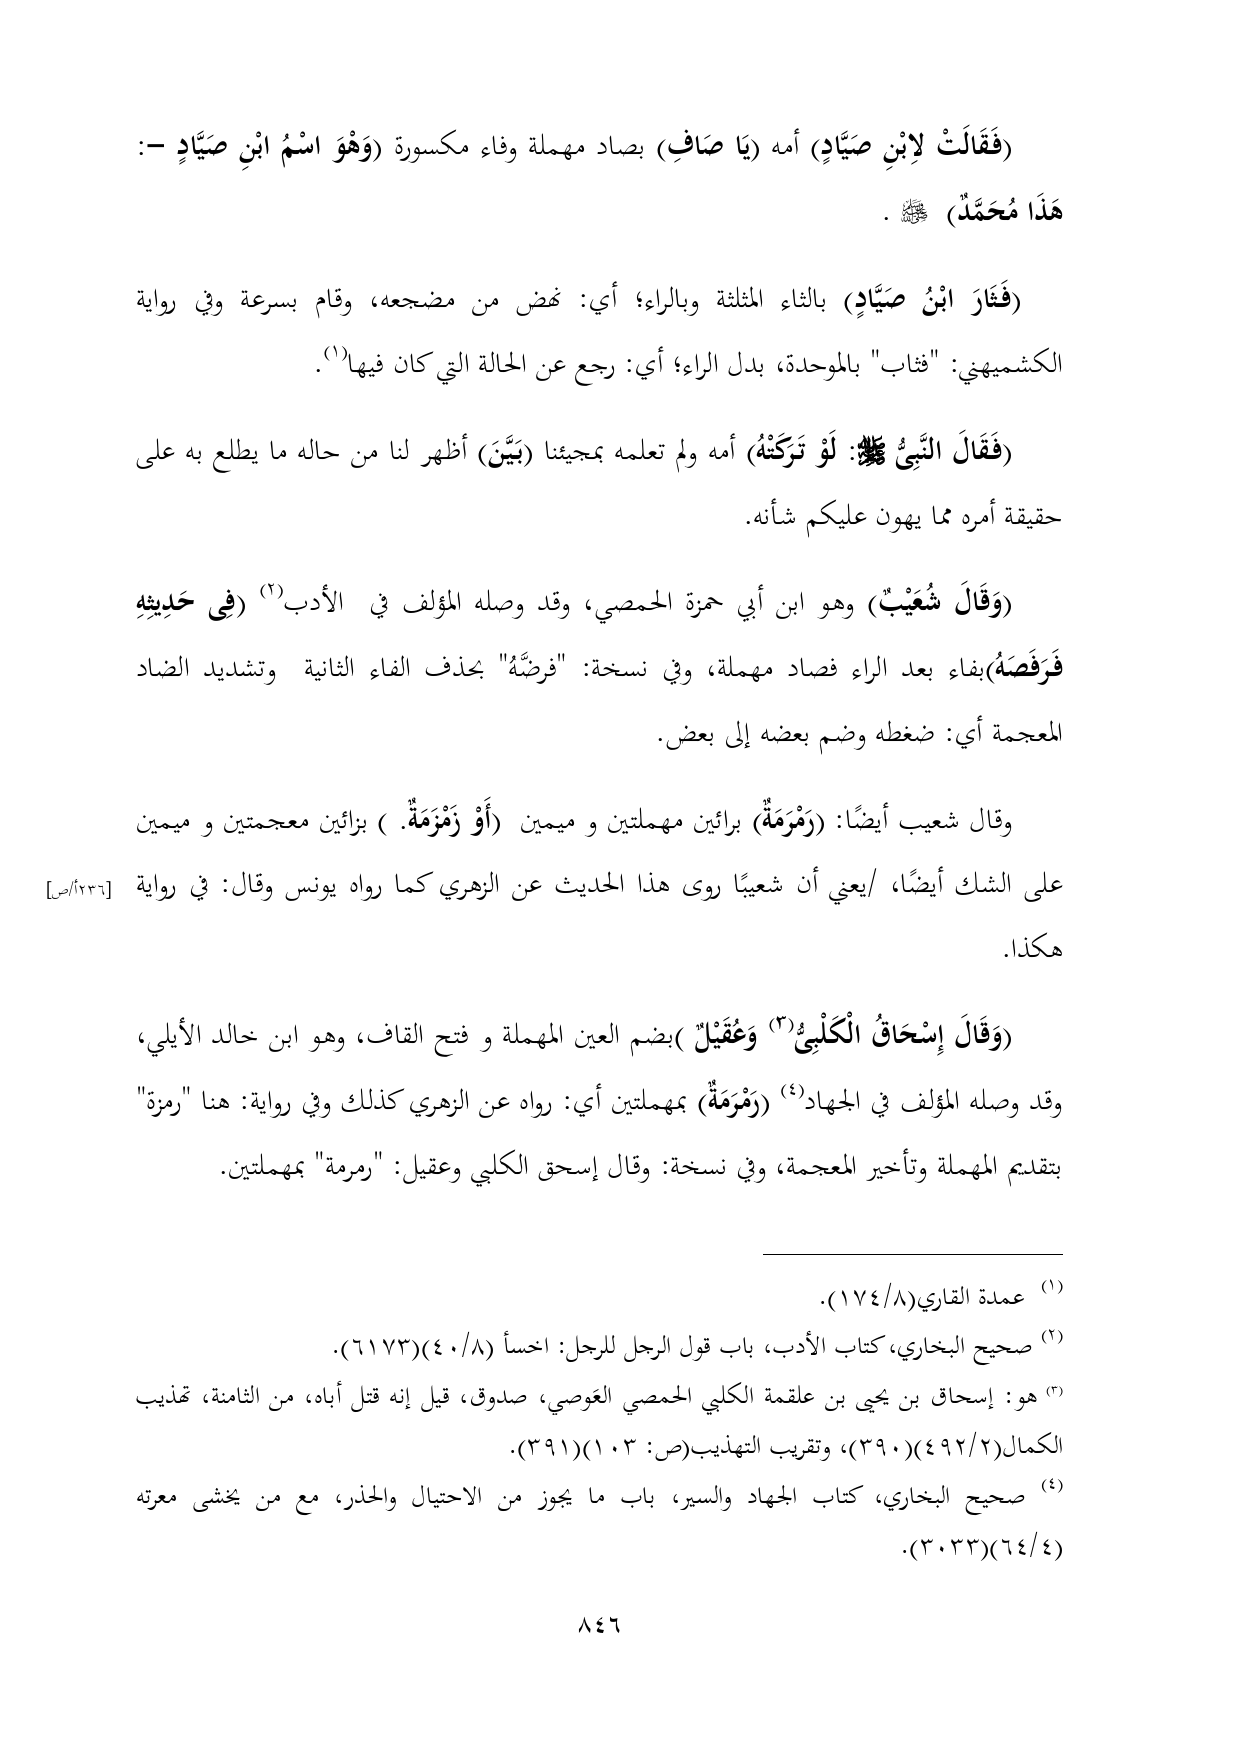 (فَقَالَتْ لاِبْنِ صَيَّادٍ) أمه (يَا صَافِ) بصاد مهملة وفاء مكسورة (وَهْوَ اسْمُ ابْنِ صَيَّادٍ –:
هَذَا مُحَمَّدٌ) ﷺ .
(فَثَارَ ابْنُ صَيَّادٍ) بالثاء المثلثة وبالراء؛ أي: نهض من مضجعه، وقام بسرعة وفي رواية
الكشميهني: "فثاب" بالموحدة، بدل الراء؛ أي: رجع عن الحالة التي كان فيها(١).
(فَقَالَ النَّبِىُّ ﷺ: لَوْ تَرَكَتْهُ) أمه ولم تعلمه بمجيئنا (بَيَّنَ) أظهر لنا من حاله ما يطلع به على
حقيقة أمره مما يهون عليكم شأنه.
(وَقَالَ شُعَيْبٌ) وهو ابن أبي حمزة الحمصي، وقد وصله المؤلف في الأدب(٢) (فِى حَدِيثِهِ
فَرَفَصَهُ)بفاء بعد الراء فصاد مهملة، وفي نسخة: "فرضَّهُ" بحذف الفاء الثانية وتشديد الضاد
المعجمة أي: ضغطه وضم بعضه إلى بعض.
وقال شعيب أيضًا: (رَمْرَمَةٌ) برائين مهملتين و ميمين (أَوْ زَمْزَمَةٌ. ) بزائين معجمتين و ميمين
على الشك أيضًا، /يعني أن شعيبًا روى هذا الحديث عن الزهري كما رواه يونس وقال: في رواية [٢٣٦أ/ص]
هكذا.
(وَقَالَ إِسْحَاقُ الْكَلْبِىُّ(٣) وَعُقَيْلٌ )بضم العين المهملة و فتح القاف، وهو ابن خالد الأيلي،
وقد وصله المؤلف في الجهاد(٤) (رَمْرَمَةٌ) بمهملتين أي: رواه عن الزهري كذلك وفي رواية: هنا "رمزة"
بتقديم المهملة وتأخير المعجمة، وفي نسخة: وقال إسحق الكلبي وعقيل: "رمرمة" بمهملتين.
(١) عمدة القاري(١٧٤/٨).
(٢) صحيح البخاري،كتاب الأدب، باب قول الرجل للرجل: اخسأ (٤٠/٨)(٦١٧٣).
(٣) هو: إسحاق بن يحيى بن علقمة الكلبي الحمصي العَوصي، صدوق، قيل إنه قتل أباه، من الثامنة، تهذيب
الكمال(٤٩٢/٢)(٣٩٠)، وتقريب التهذيب(ص: ١٠٣)(٣٩١).
(٤) صحيح البخاري، كتاب الجهاد والسير، باب ما يجوز من الاحتيال والحذر، مع من يخشى معرته
(٦٤/٤)(٣٠٣٣).
٨٤٦